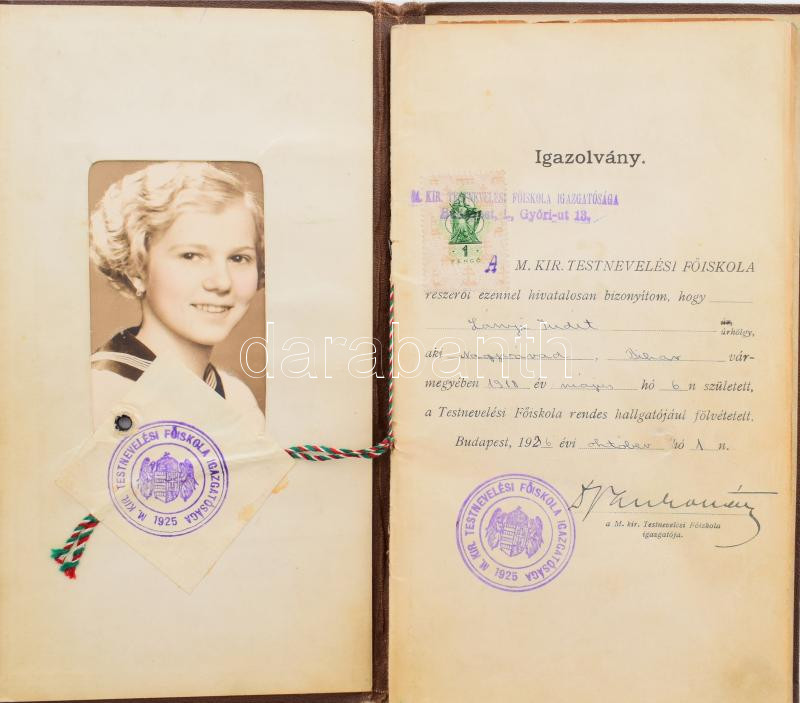 M. KIR. TESTNEVELÉSI FŐISKOLA IGAZGATÓSÁGA
1925
Igazolvány.
M. KIR. TESTNEVELÉSI FŐISKOLA IGAZGATÓSÁGA
Budapest, I., Győri-ut 13.
1
PENGŐ
A M. KIR. TESTNEVELÉSI FŐISKOLA
részéről ezennel hivatalosan bizonyítom, hogy
Judit úrhölgy,
aki Nagyvárad, Bihar vár-
megyében 1918 év május hó 6 n született,
a Testnevelési Főiskola rendes hallgatójául fölvétetett.
Budapest, 1936 évi október hó 1 n.
a M. kir. Testnevelési Főiskola
igazgatója.
M. KIR. TESTNEVELÉSI FŐISKOLA IGAZGATÓSÁGA
1925
darabanth